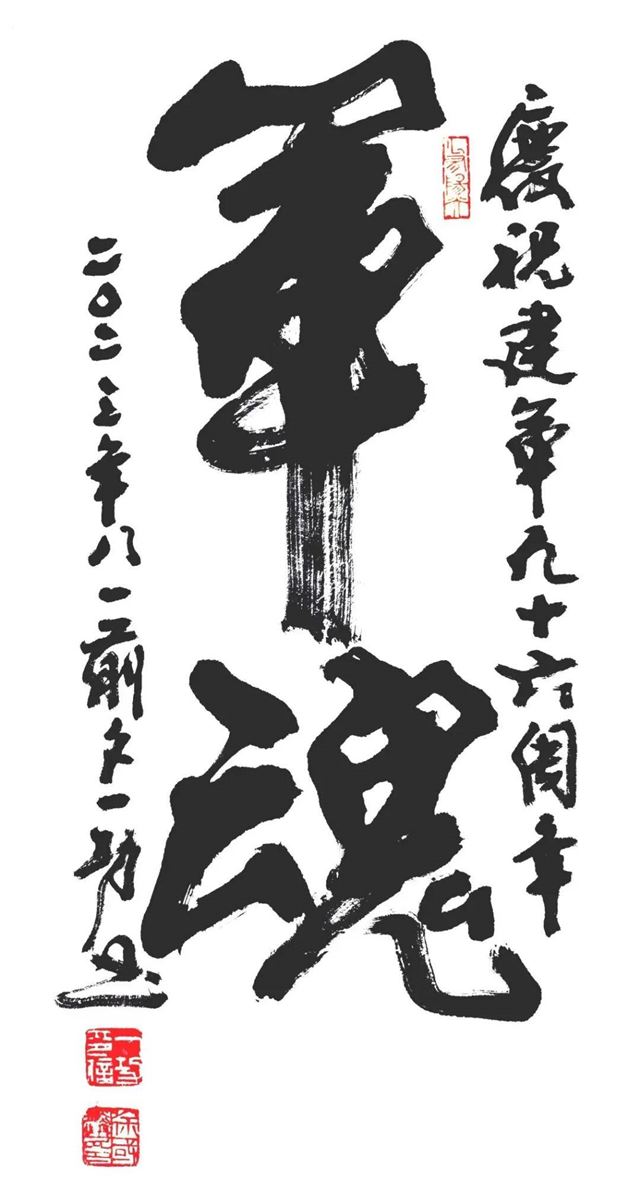 慶祝建軍九十六周年
軍魂
二〇二三年八一前夕一书